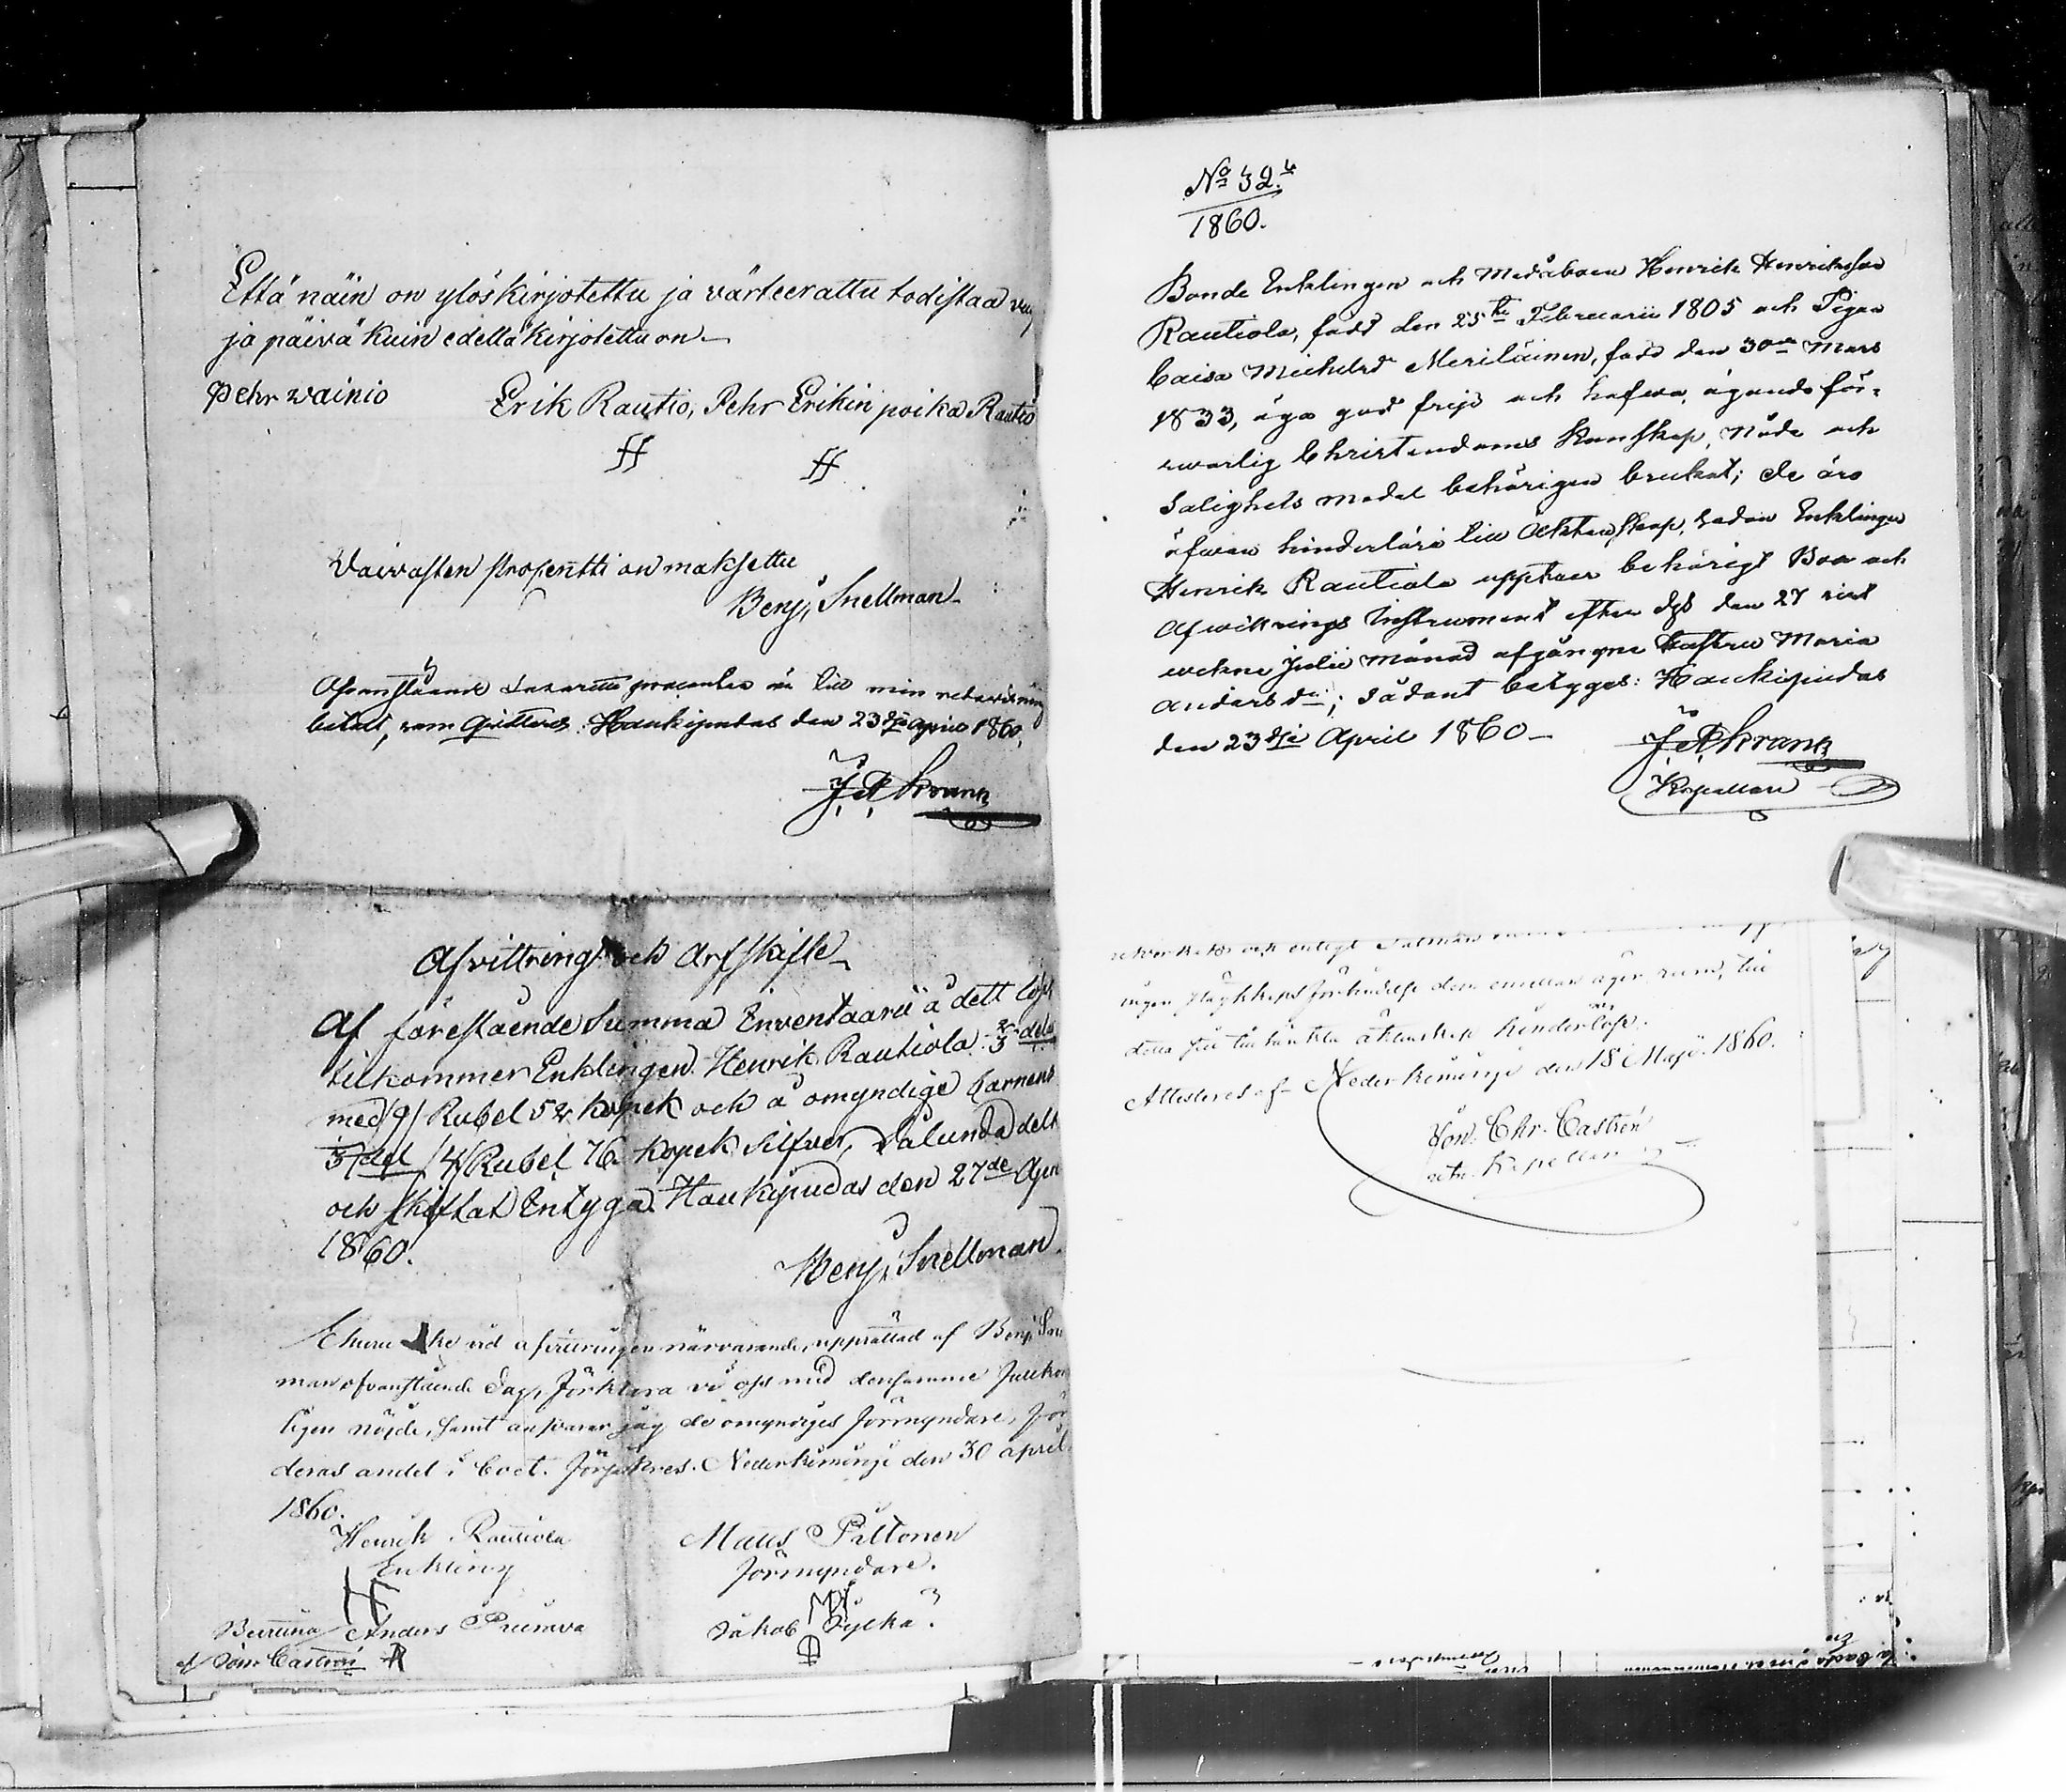 Että näin on ylöskirjotettu ja värteerattu todistaa
ja päivä kuin edellä kirjotettu on
Pehr Wainio Erik Rautio, Pehr Erikin poika Rautio
Vaivasten prosentti on maksettu
Benj. Snellman
Ofvanstående Lazaretts procenter är till min redovisning
betalt, som qvitteras. Haukipudas den 23dje April 1860.
J A Krank
Afvittring och Arfskifte
Af förestående Summa Inventaarii å dett
tilkommer Enklingen Henrik Rautiola 2/3 delar
med 9 Rubel 52 kopek och å omyndige barnens
1/3 del 4 Rubel 76 kopek Silfver, Sålunda delt
och skiftat Intyga. Haukipudas den 27de
1860.
Benj. Snellman
Ehuru icke vid afvittringen närvarande, upprättad af Benj.
man ofvanstående dag, förklara vi oss med densamma
ligen nöjde, samt ansvarar jag de omyndiges förmyndare, för
deras andel i boet. Försäkras. Nederkiminge den 30 April
1860.
Henrik Rautiola Matts Piltonen
Enkling förmyndare.
Anders Jakob
af Joh. Castrén
No 32.
1860.
Bonde Enklingen och Medåboen Henrik Henriksson
Rautiola, född den 25te Februarii 1805 och Pigan
Caisa Michelsdr Meriläinen, född den 30de Mars
1833, äga god frejd och hafva, ägande för-
svarlig Christendoms Kunskap, Nåde och
Salighets medel behörigen brukat; de äro
äfven hinderlöse till Äktenskap, sedan Enklingen
Henrik Rautiola upptver behörigt Boo och
Afvittrings Instrument efter dess den 27 sist
vekne Julii månad afgångne hustru Maria
Andersdr; sådant betygas: Haukipudas
den 23dje April 1860
J A Krank
Kapellan
ingen skyldskaps förbindelse dem emellan äger rum, till
detta sitt tilltänkta äktenskap hinderlöse.
Attesteras af Nederkiminge den 18 Maji 1860.
Joh. Chr. Castrén
Kapellan